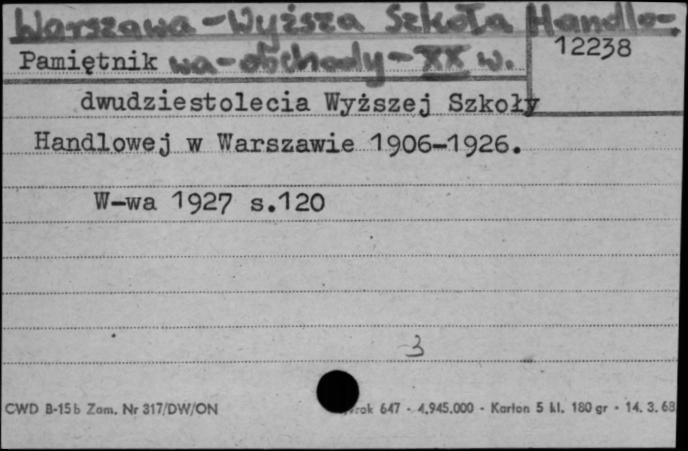 Warszawa - Wyższa Szkoła Handlo-
12238
Pamiętnik wa - obchody - XX w.
dwudziestolecia Wyższej Szkoły
Handlowej w Warszawie 1906-1926.
W-wa 1927 s.120
3
CWD B-15b Zam. Nr 317/DW/ON 647 - 4.945.000 - Karton 5 kl. 180 gr - 14. 3. 68